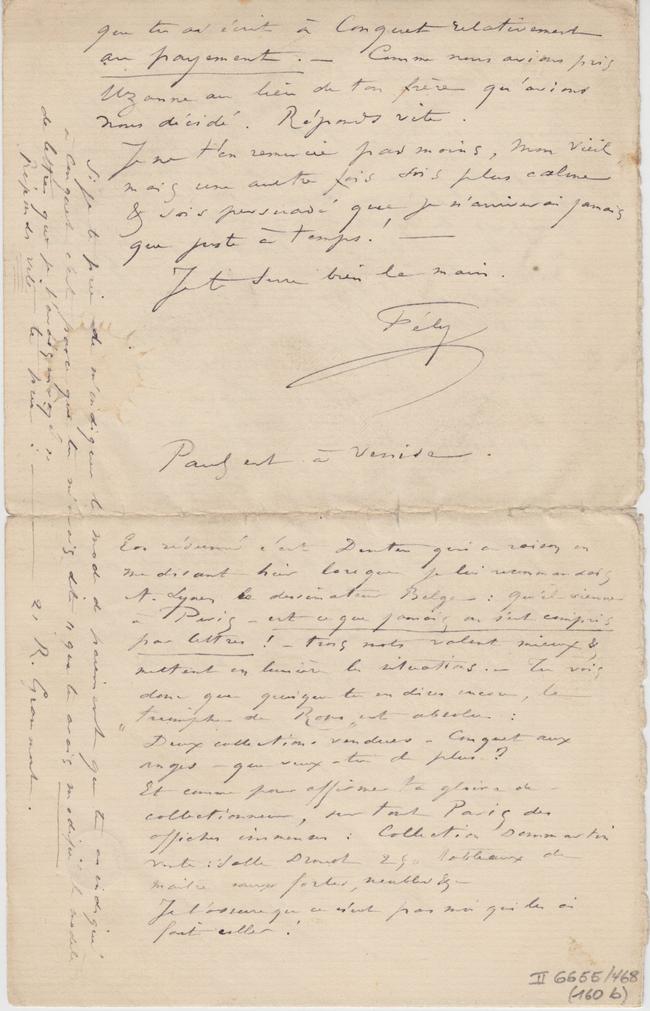 que tu as écrit à Conquet relativement
au payement. — Comme nous avions pris
Uzanne au lieu de ton frère qu'avions
nous décidé. Réponds vite.
Je ne t'en remercie pas moins, mon vieil
mais une autre fois sois plus calme
& sois persuadé que je n'arriverai jamais
que juste à temps! —
Je te serre bien la main.
Fély
Paul est à Venise.
En résumé c'est Dentu qui a raison en
me disant hier lorsque je lui recommandais
A. Lynen le dessinateur Belge: qu'il vienne
à Paris – est ce que jamais on s'est compris
par lettres! – trois mots valent mieux &
mettent en lumière les situations. – Tu vois
donc que quoique tu en dises encore, le
"triomphe de Rops" est absolu:
Deux collections vendues – Conquet aux
anges – que veux-tu de plus?
Et comme pour affirmer ta gloire de
collectionneur, sur tout Paris des
affiches immenses: Collection Dommartin
vente: Salle Drouot Tableaux de
maître eaux fortes, meubles &
Je t'assure que ce n'est pas moi qui les ai
fait coller!
Si je te prie de m'indiquer le mode de paiement que tu as indiqué
à Conquet c'est parce que tu m'avais dit que tu avais modifié le modèle
de lettre que je t'avais
Réponds vite te prie: — 21 R. Grammont.
II 6655/468
(160 b)